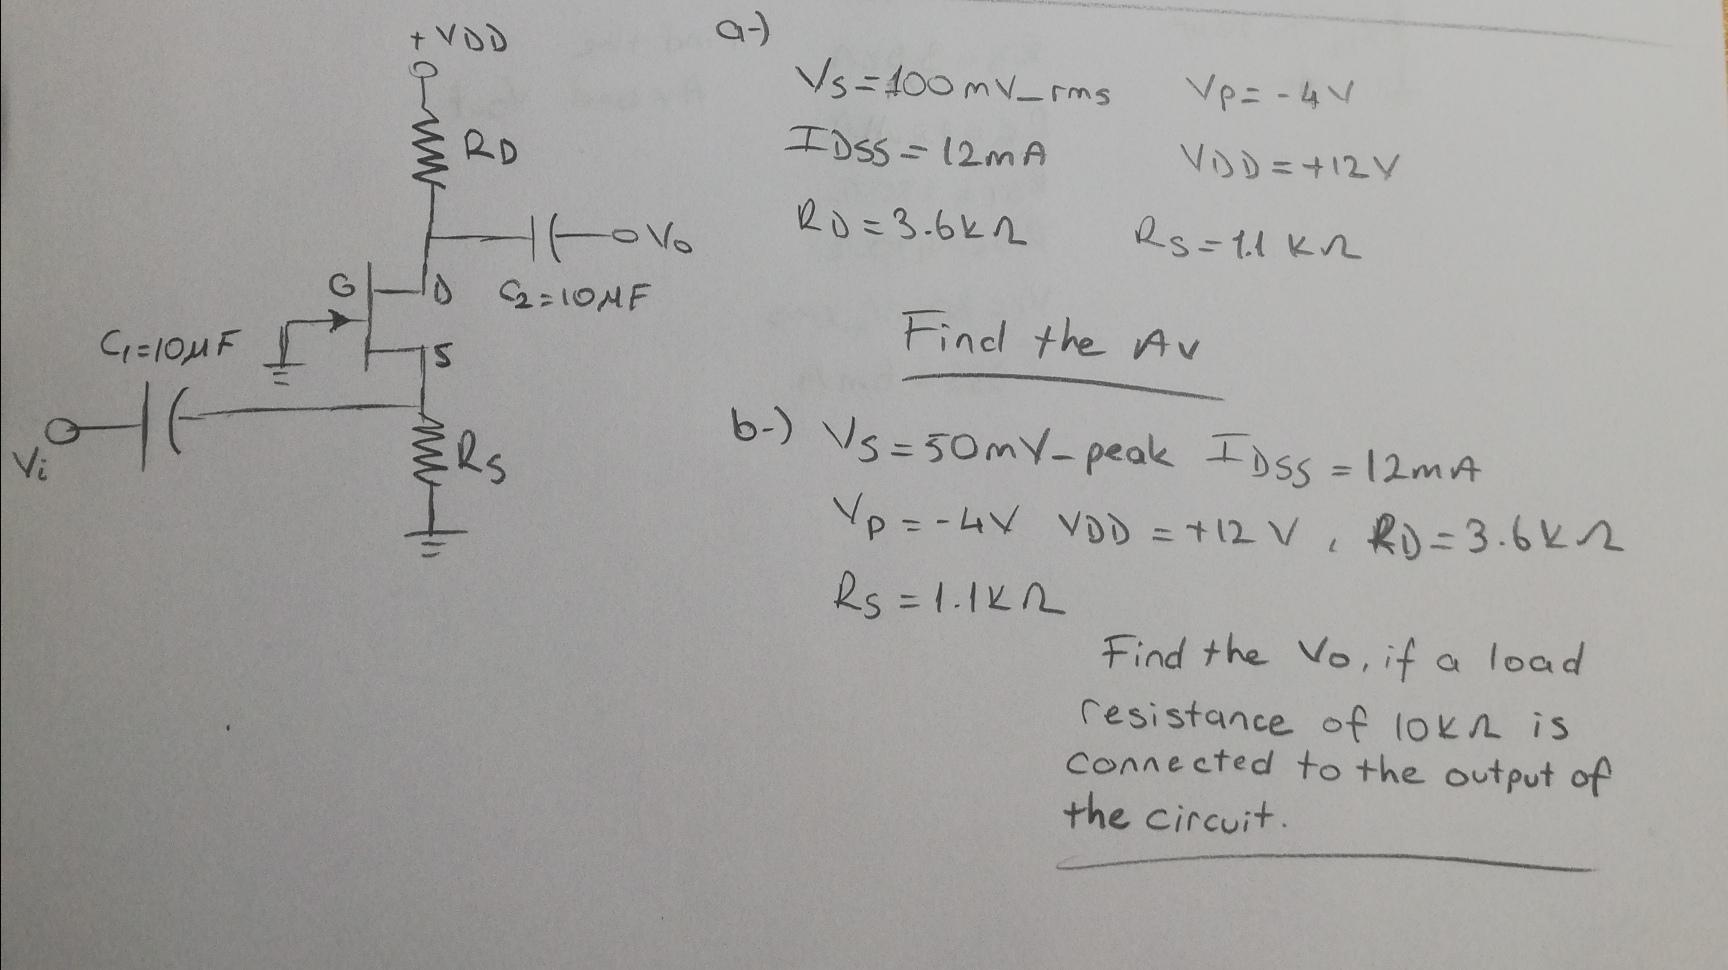 +VDD
RD
Vo
G
D
C2=10µF
C1=10µF
S
Vi
RS
a-)
Vs=100mV_rms Vp=-4V
IDSS=12mA VDD=+12V
RD=3.6kΩ Rs=1.1 kΩ
Find the Av
b-) Vs=50mV-peak IDSS=12mA
Vp=-4V VDD=+12V, RD=3.6kΩ
Rs=1.1kΩ
Find the Vo, if a load
resistance of 10kΩ is
connected to the output of
the circuit.